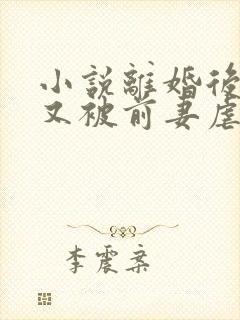 小說離婚後
又被前妻虐
李震桀